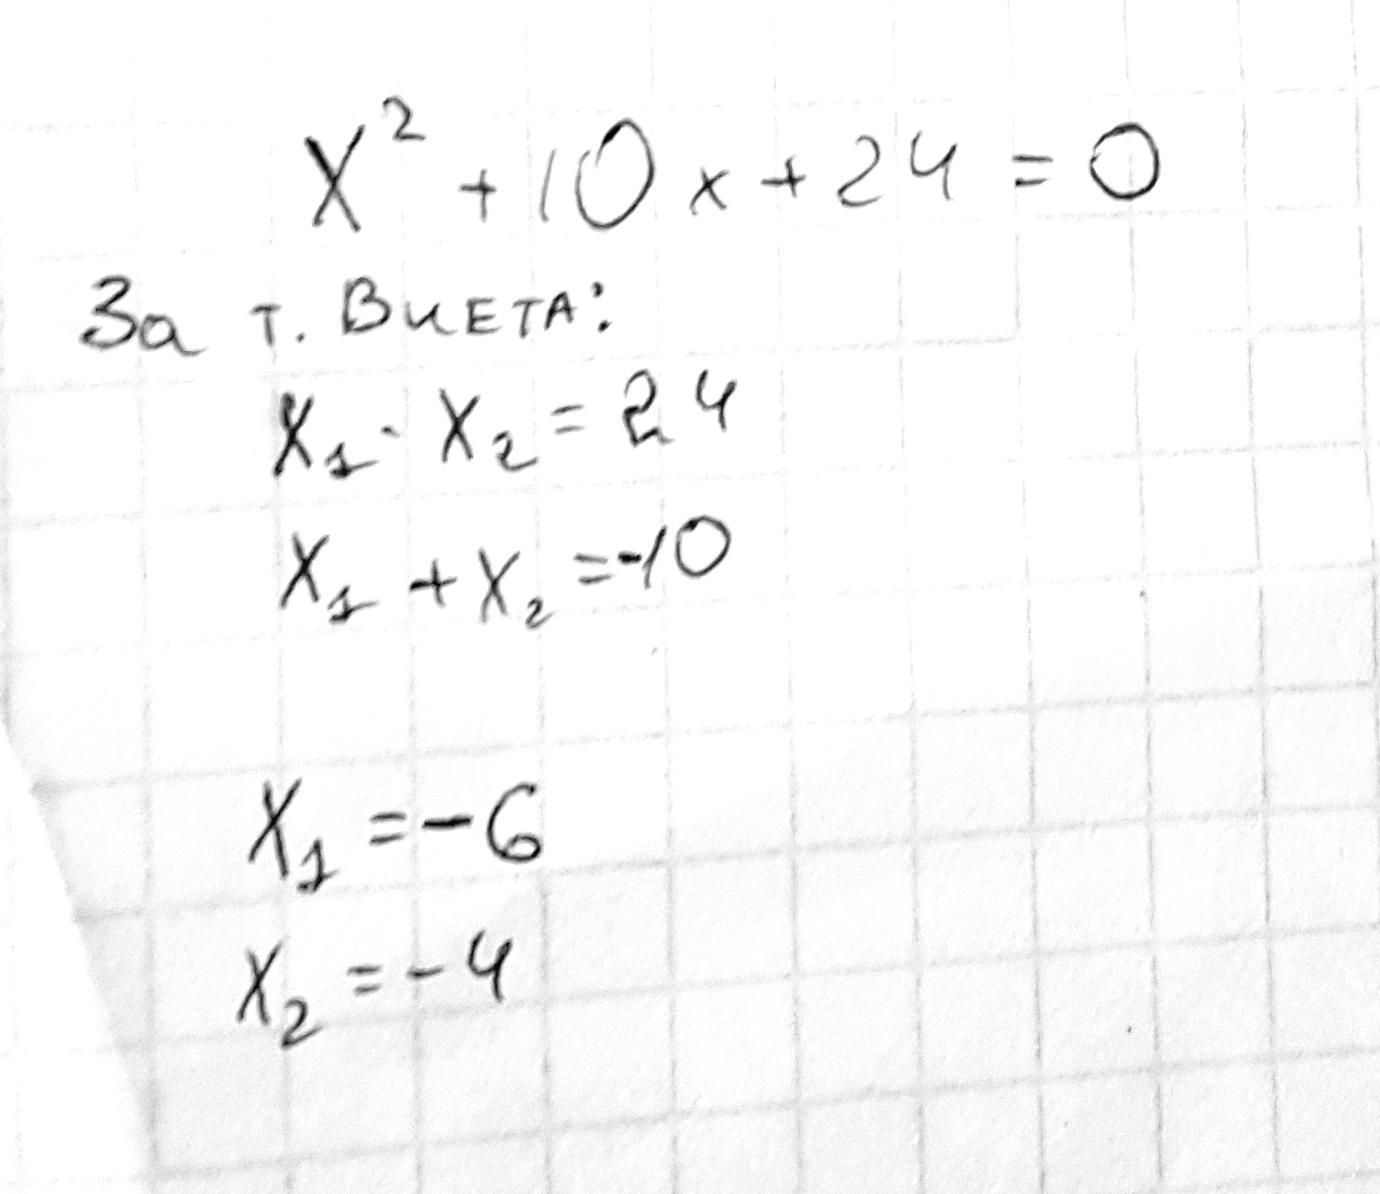 x² + 10x + 24 = 0
За т. Виета:
x₁ · x₂ = 24
x₁ + x₂ = -10
x₁ = -6
x₂ = -4